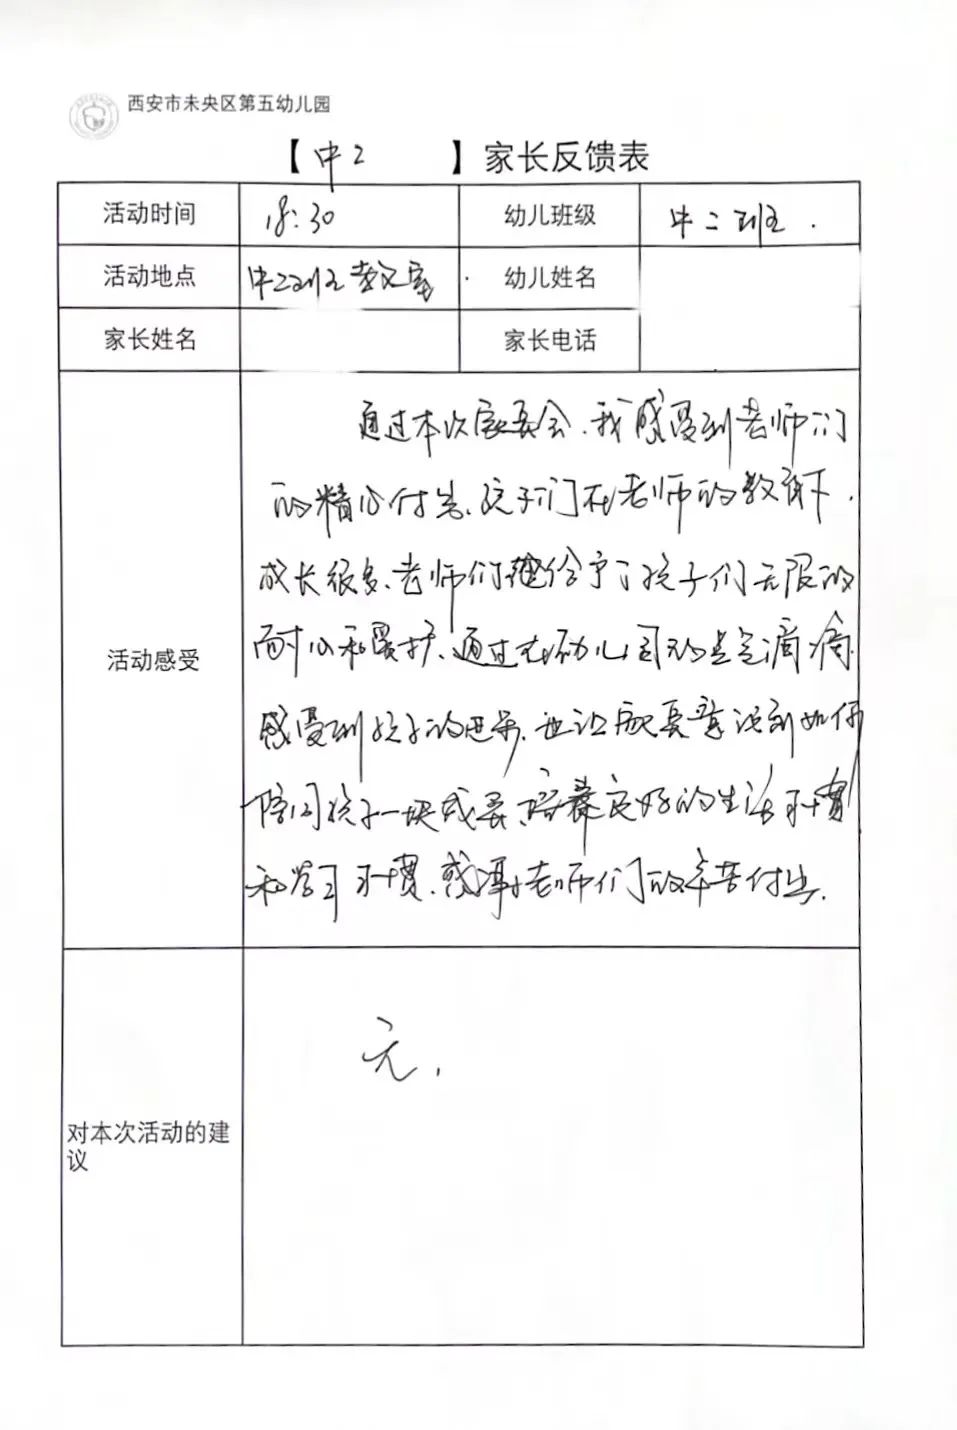 西安市未央区第五幼儿园
【 中2 】家长反馈表
活动时间 18:30 幼儿班级 中二班.
活动地点 中二班教室 幼儿姓名
家长姓名 家长电话
活动感受
通过本次家长会,我感受到老师们
的精心付出,孩子们在老师的教育下,
成长很多,老师们给予了孩子们无限的
耐心和爱护,通过在幼儿园的点点滴滴,
感受到孩子的进步,也让家长意识到如何
陪同孩子一块成长,培养良好的生活习惯
和学习习惯,感谢老师们的辛苦付出.
对本次活动的建
议
无.